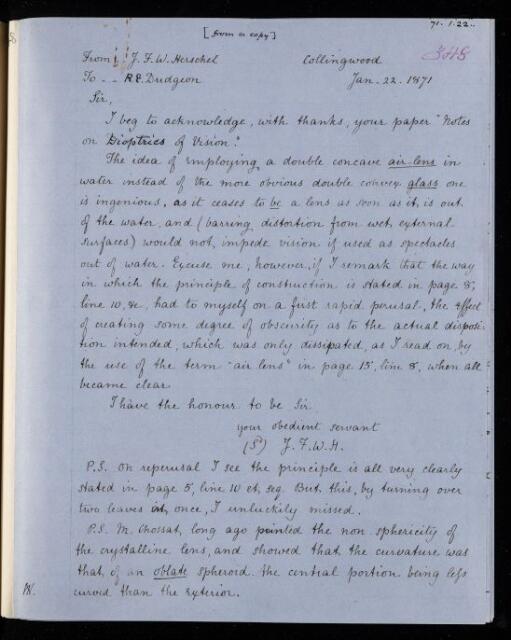 71.1.22.
[from a copy]
From J. F. W. Herschel Collingwood
To - - R. E. Dudgeon Jan. 22. 1871
Sir,
I beg to acknowledge, with thanks, your paper "Notes
on Dioptrics of Vision".
The idea of employing a double concave air-lens in
water instead of the more obvious double convex glass one
is ingenious, as it ceases to be a lens as soon as it is out
of the water, and (barring distortion from wet external
surfaces) would not impede vision if used as spectacles
out of water. Excuse me, however, if I remark that the way
in which the principle of construction is stated in page 8,
line 10, &c, had to myself on a first rapid perusal, the effect
of creating some degree of obscurity as to the actual disposi-
tion intended, which was only dissipated, as I read on, by
the use of the term "air lens" in page 15, line 8, when all
became clear
I have the honour to be Sir.
your obedient servant
(S) J. F. W. H.
P.S. On reperusal I see the principle is all very clearly
stated in page 5, line 10 et, seq. But this, by turning over
two leaves at once, I unluckily missed.
P.S. M. Chossat, long ago pointed the non sphericity of
the crystalline lens, and showed that the curvature was
that of an oblate spheroid. the central portion being less
curved than the exterior.